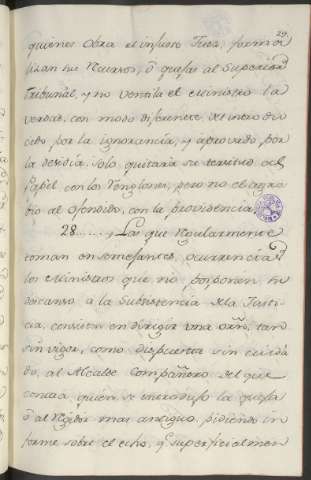 29.
quienes Obra el infuero Juez, forma
lizan sus Recursos, ó quejas al Superior
Tribunal, y no ventila el Ministro la
verdad, con modo diferente del introdu
cido por la ignorancia, y aprovado por
la desidia, Solo quitará su territud
Papil, con los Renglones, pero no el agra
bio al Ofendido, con la providencia
28...... Las que Regularmente
toman en semejantes ocurrencias
los Ministros que no posponen su
descanso a la Subsistencia dela Justi-
cia, consisten en dirigir una orñ, tan
sin vigor, como dispuesta sin cuida
do, al Alcalde Compañero del que
contra quien se introdujo la queja
ó al Regidor mas antiguo, pidiendo in
forme sobre el echo, q superficialmen